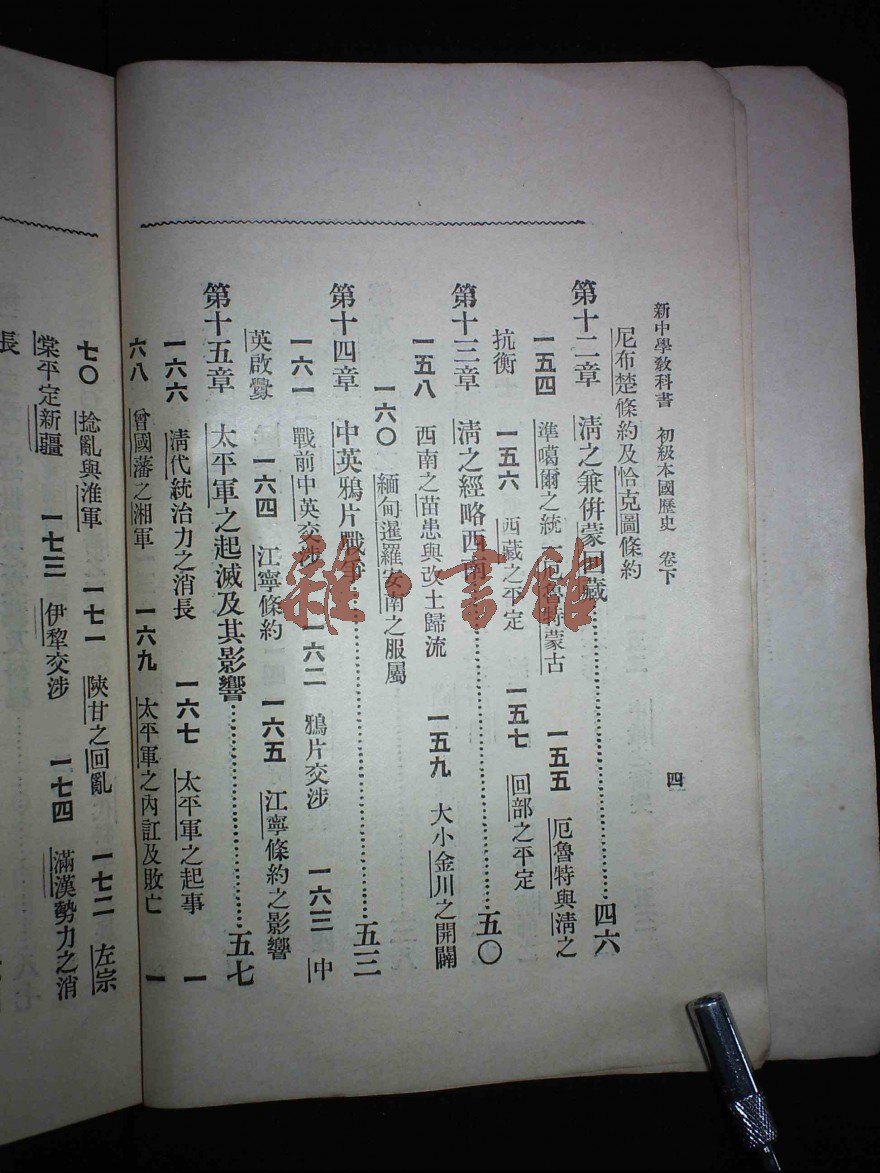 新中學教科書　初級本國歷史　卷下
四
尼布楚條約及恰克圖條約
第十二章　清之兼併蒙回藏……四六
一五四　準噶爾之統一厄魯特蒙古　一五五　厄魯特與清之
抗衡　一五六　西藏之平定　一五七　回部之平定
第十三章　清之經略西南……五〇
一五八　西南之苗患與改土歸流　一五九　大小金川之開闢
一六〇　緬甸暹羅安南之服屬
第十四章　中英鴉片戰爭……五三
一六一　戰前中英交涉　一六二　鴉片交涉　一六三　中
英啟釁　一六四　江寧條約　一六五　江寧條約之影響
第十五章　太平軍之起滅及其影響……五七
一六六　清代統治力之消長　一六七　太平軍之起事　一
六八　曾國藩之湘軍　一六九　太平軍之內訌及敗亡　一
七〇　捻亂與淮軍　一七一　陝甘之回亂　一七二　左宗
棠平定新疆　一七三　伊犂交涉　一七四　滿漢勢力之消
長
雜·書館